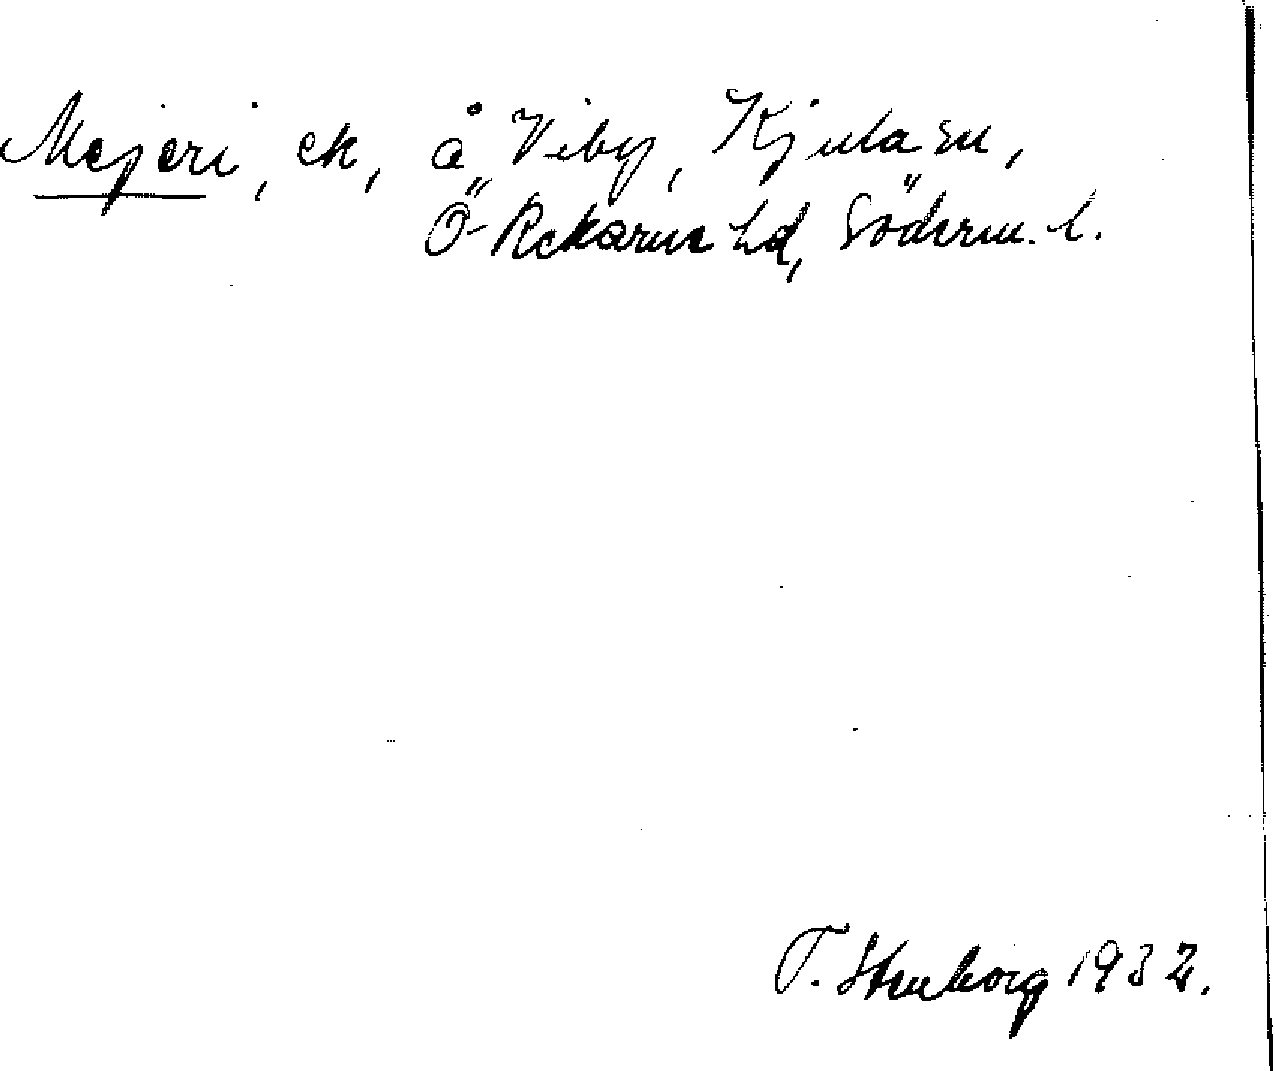 Mejeri, ek, å Viby, Kjula sn,
Ö Rekarne hd, Söderm. l.
T. Stenborg 1932.